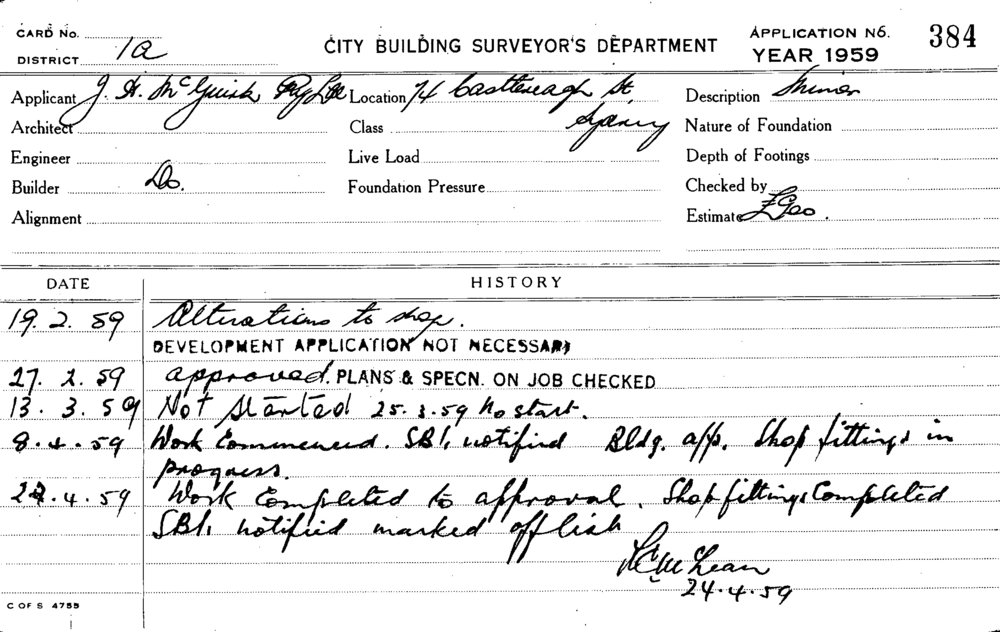 CARD No.
DISTRICT 1a
CITY BUILDING SURVEYOR'S DEPARTMENT
APPLICATION No. 384
YEAR 1959
Applicant J. H. McGuirk Pty Ltd Location 74 Castlereagh St. Description Minor
Architect Class Sydney Nature of Foundation
Engineer Live Load Depth of Footings
Builder Do. Foundation Pressure Checked by
Alignment Estimate
DATE HISTORY
19.2.59 Alterations to shop.
DEVELOPMENT APPLICATION NOT NECESSARY
27.2.59 approved. PLANS & SPECN. ON JOB CHECKED
13.3.59 Not started 25.3.59 No start.
8.4.59 Work Commenced. SBI, notified Bldg. app. Shop fittings in
progress.
4.59 Work Completed to approval. Shop fittings Completed
SBI, notified marked off list
McLean
24.4.59
C OF S 4755